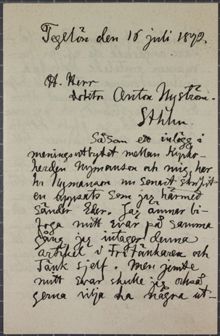 Tegelön den 15 juli 1892.
H. Herr
Doktor Anton Nyström
Sthlm.
Såsom ett inlägg i
meningsutbytet mellan Kyrko-
herden Nymanson och mig, har
hr Nymanson nu senast skrifvit
en uppsats som jag härmed
sänder Eder. Jag ämnar bi-
foga mitt svar på samma
gång jag intager denna
artikel i Fritänkaren och
Tänk sjelf. Men jemte
mitt svar skulle jag också
gerna vilja ha några ut-